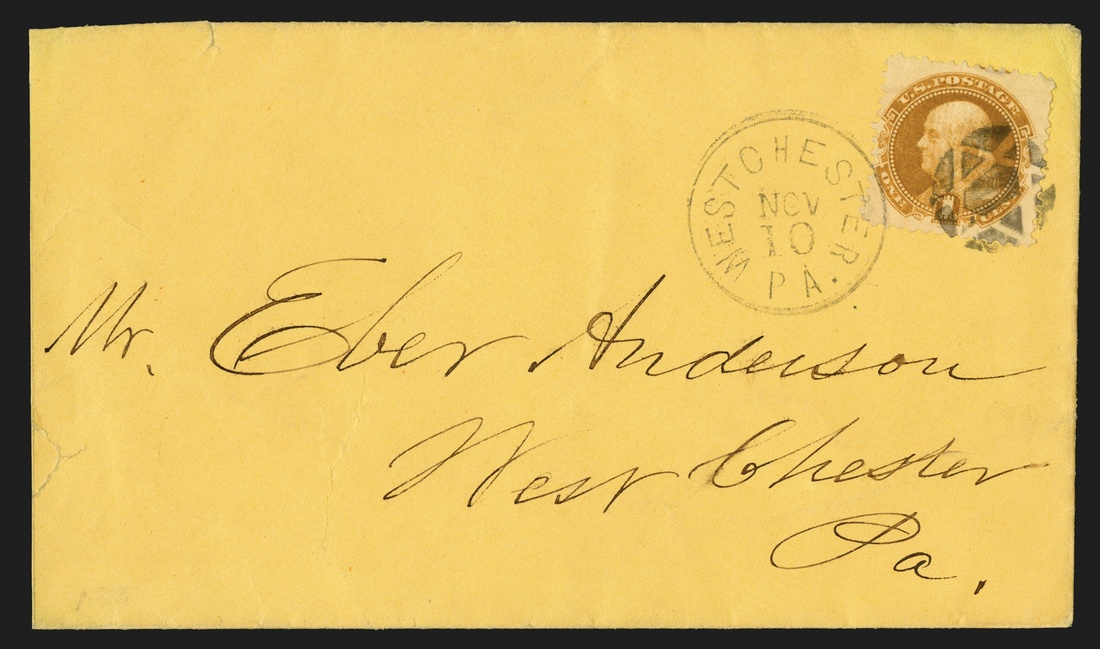 U.S. POSTAGE
ONE CENT
WEST CHESTER
NOV
10
PA.
Mr. Eber Anderson
West Chester
Pa.